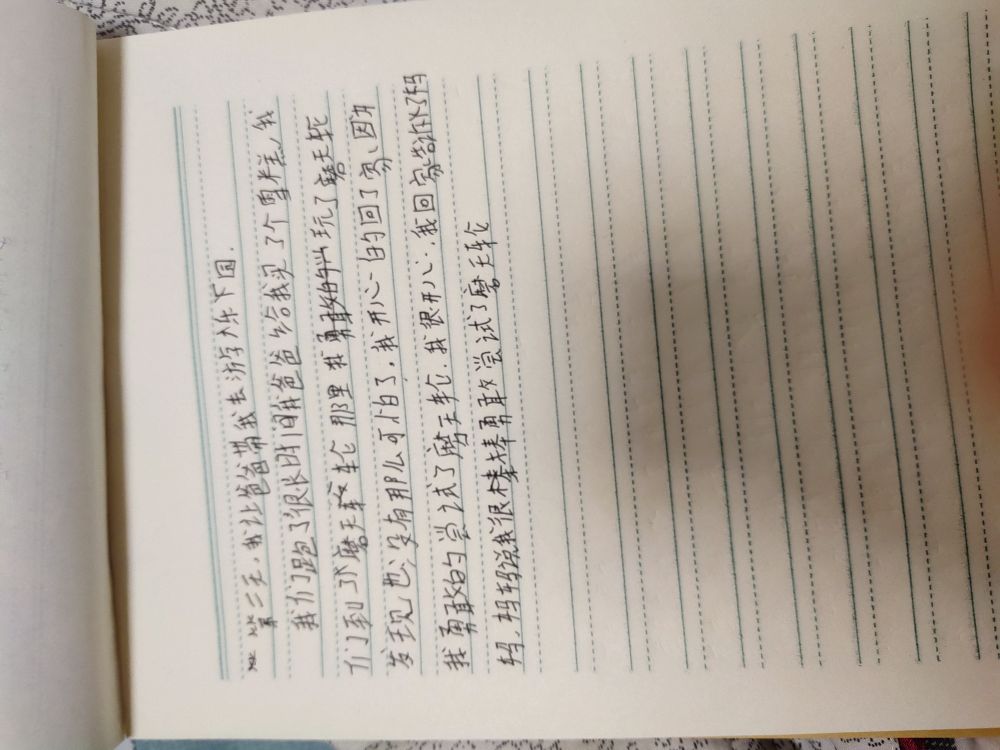 第二天,我让爸爸带我去游乐下园.
我们跑了很长时间,爸爸给我买了个雪羔、我
们到了磨天轮那里我勇敢的玩了磨天轮
发现,也没有那么可怕了,我开心的回了家、因为
我勇敢的尝试了磨天轮.我很开心.我回家告诉了妈
妈,妈妈说我很棒棒勇敢尝试了磨天轮